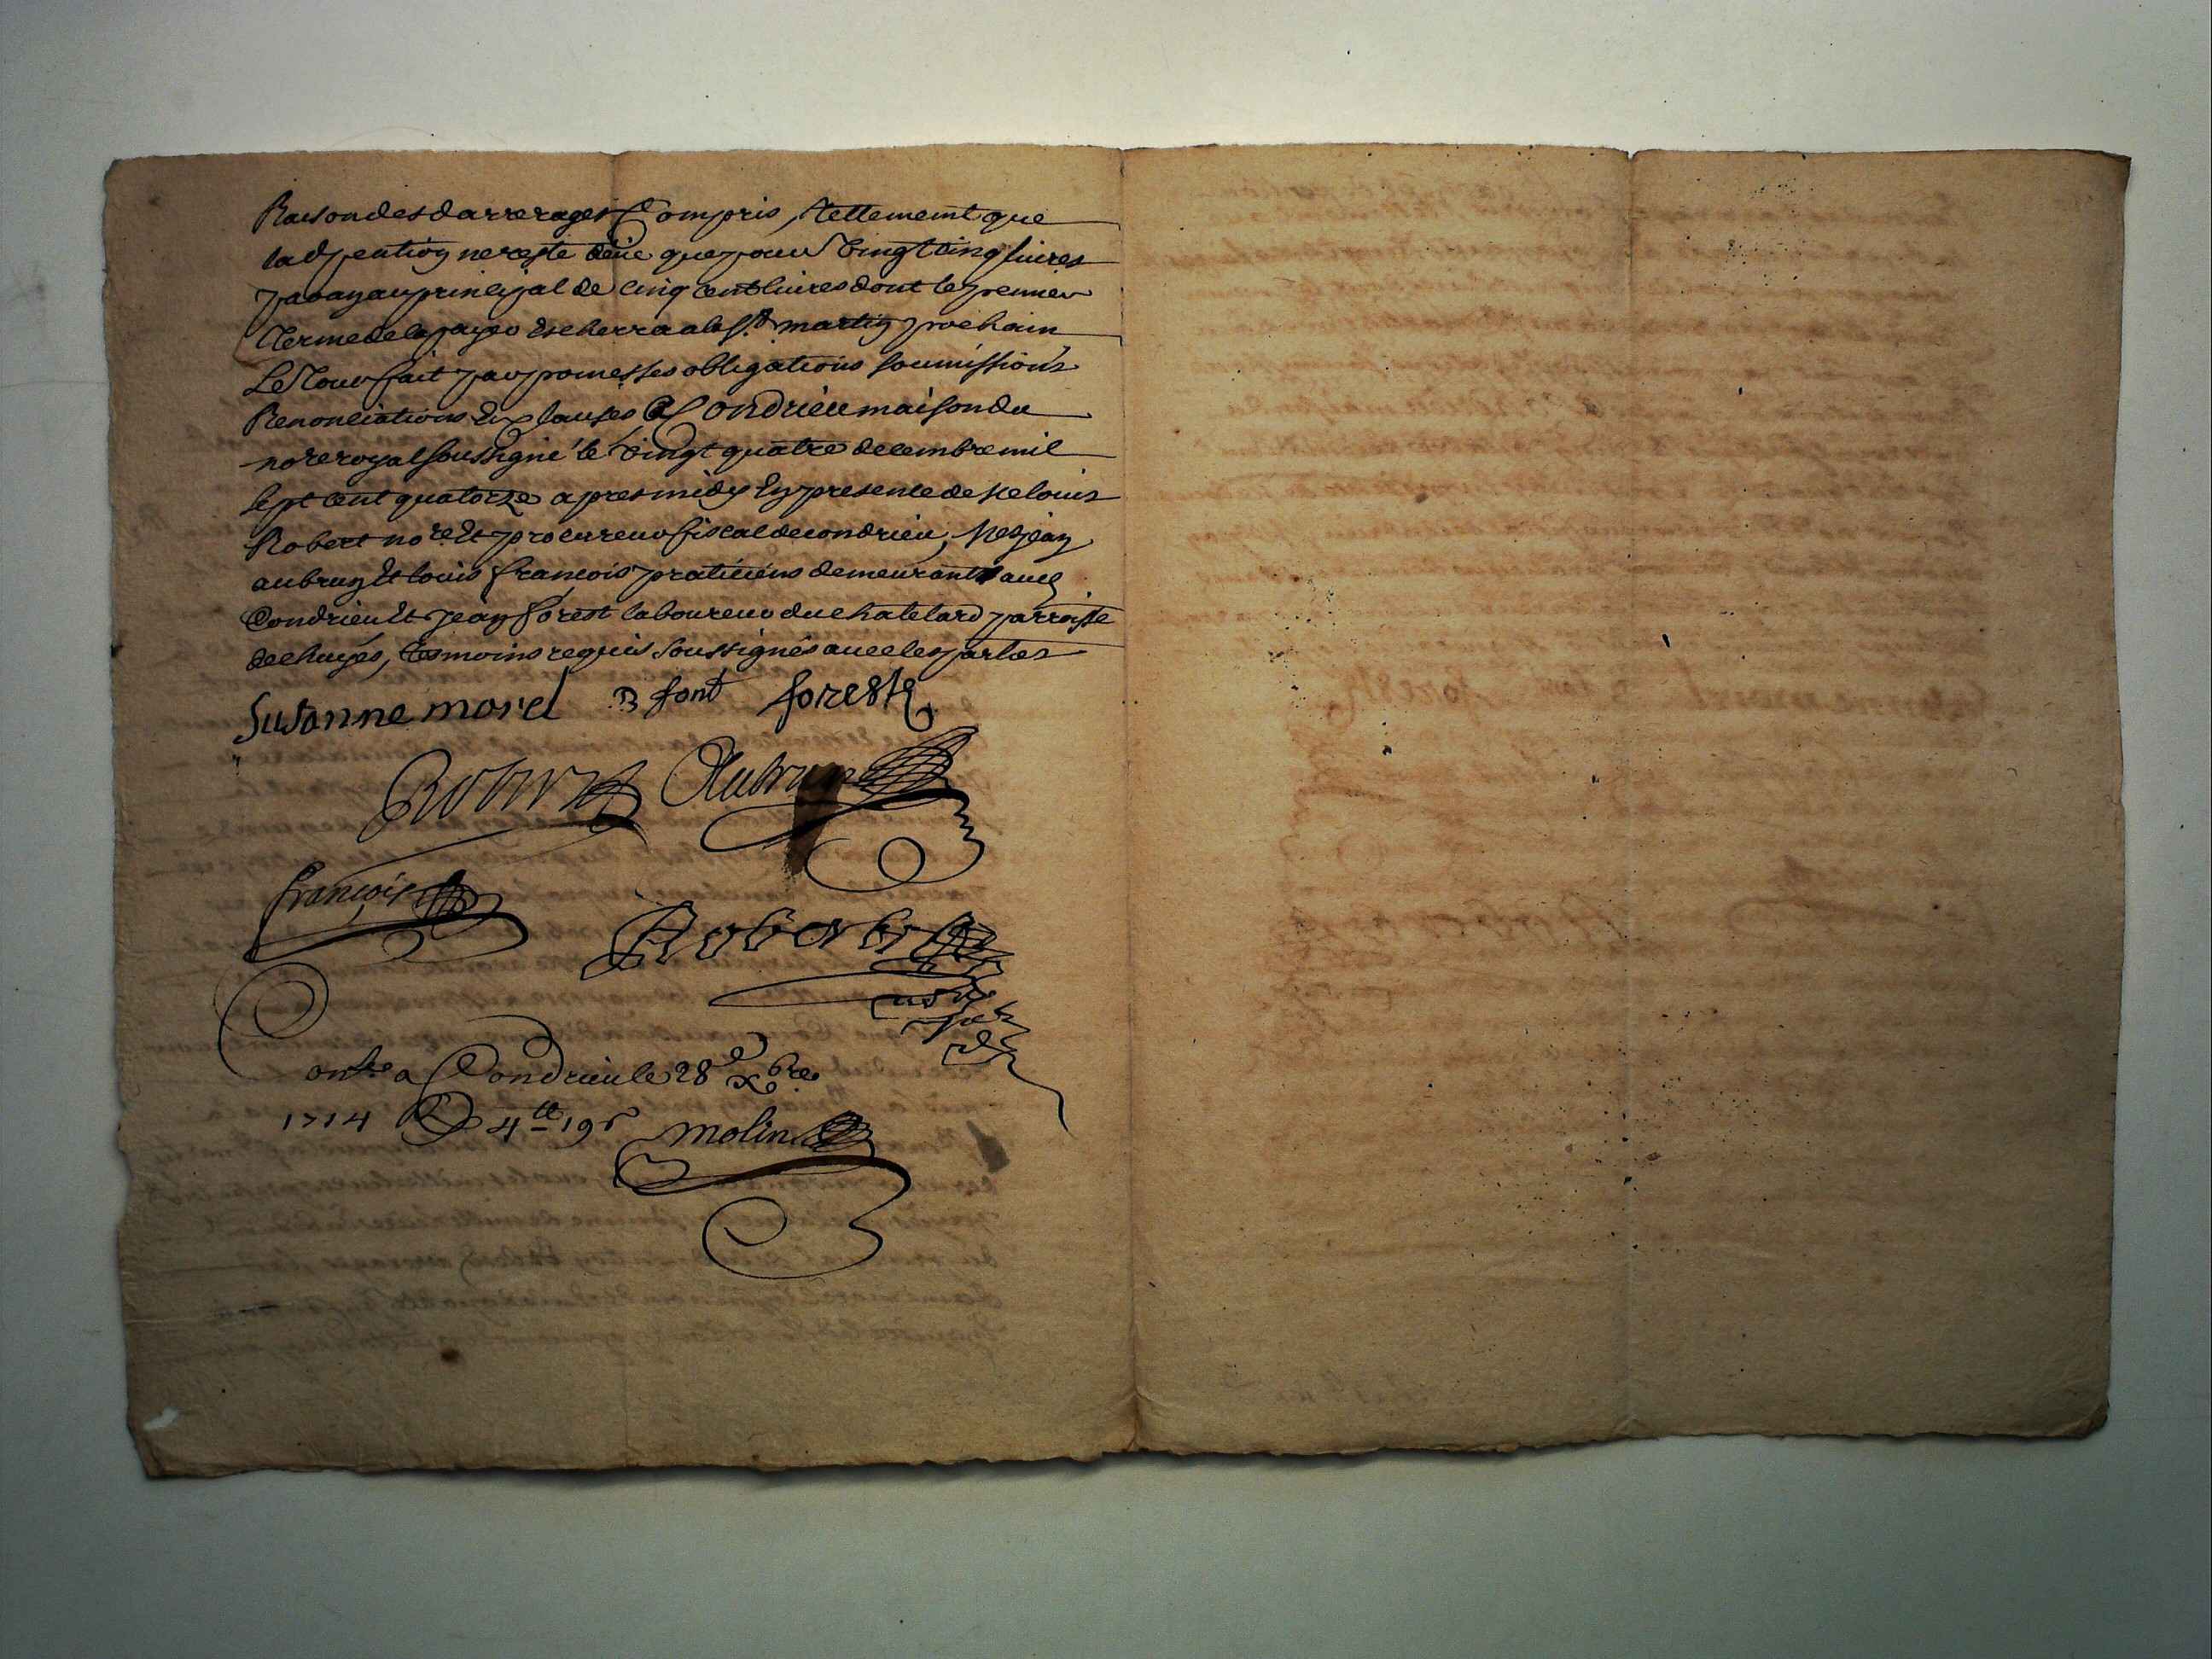 Raison des d arrerages Compris, tellement que
lad pention ne reste deüe que pour Vingt cinq livres
par an au principal de cinq cent livres dont le premier
terme de la payer Escherra a la St martin prochain
Le tout fait par promesses obligations soumissions
Renonciations Et Clauses a Condrieu maison du
nore royal soussigné le vingt quatre decembre mil
sept cent quatorze apres midy En presence de Me louis
Robert nore Et procureur fiscal de condrieu, Mes jean
aubrun Et louis francois praticiens demeurants aud
Condrieu Et jean forest laboureur du chatelard parroisse
de chuyes, tesmoins requis soussignés avec les parties
Susanne morel B font forest
Robert Aubrun
francois Robert
nore
a Condrieu le 28e xbre
1714 R 4tt 19s molin